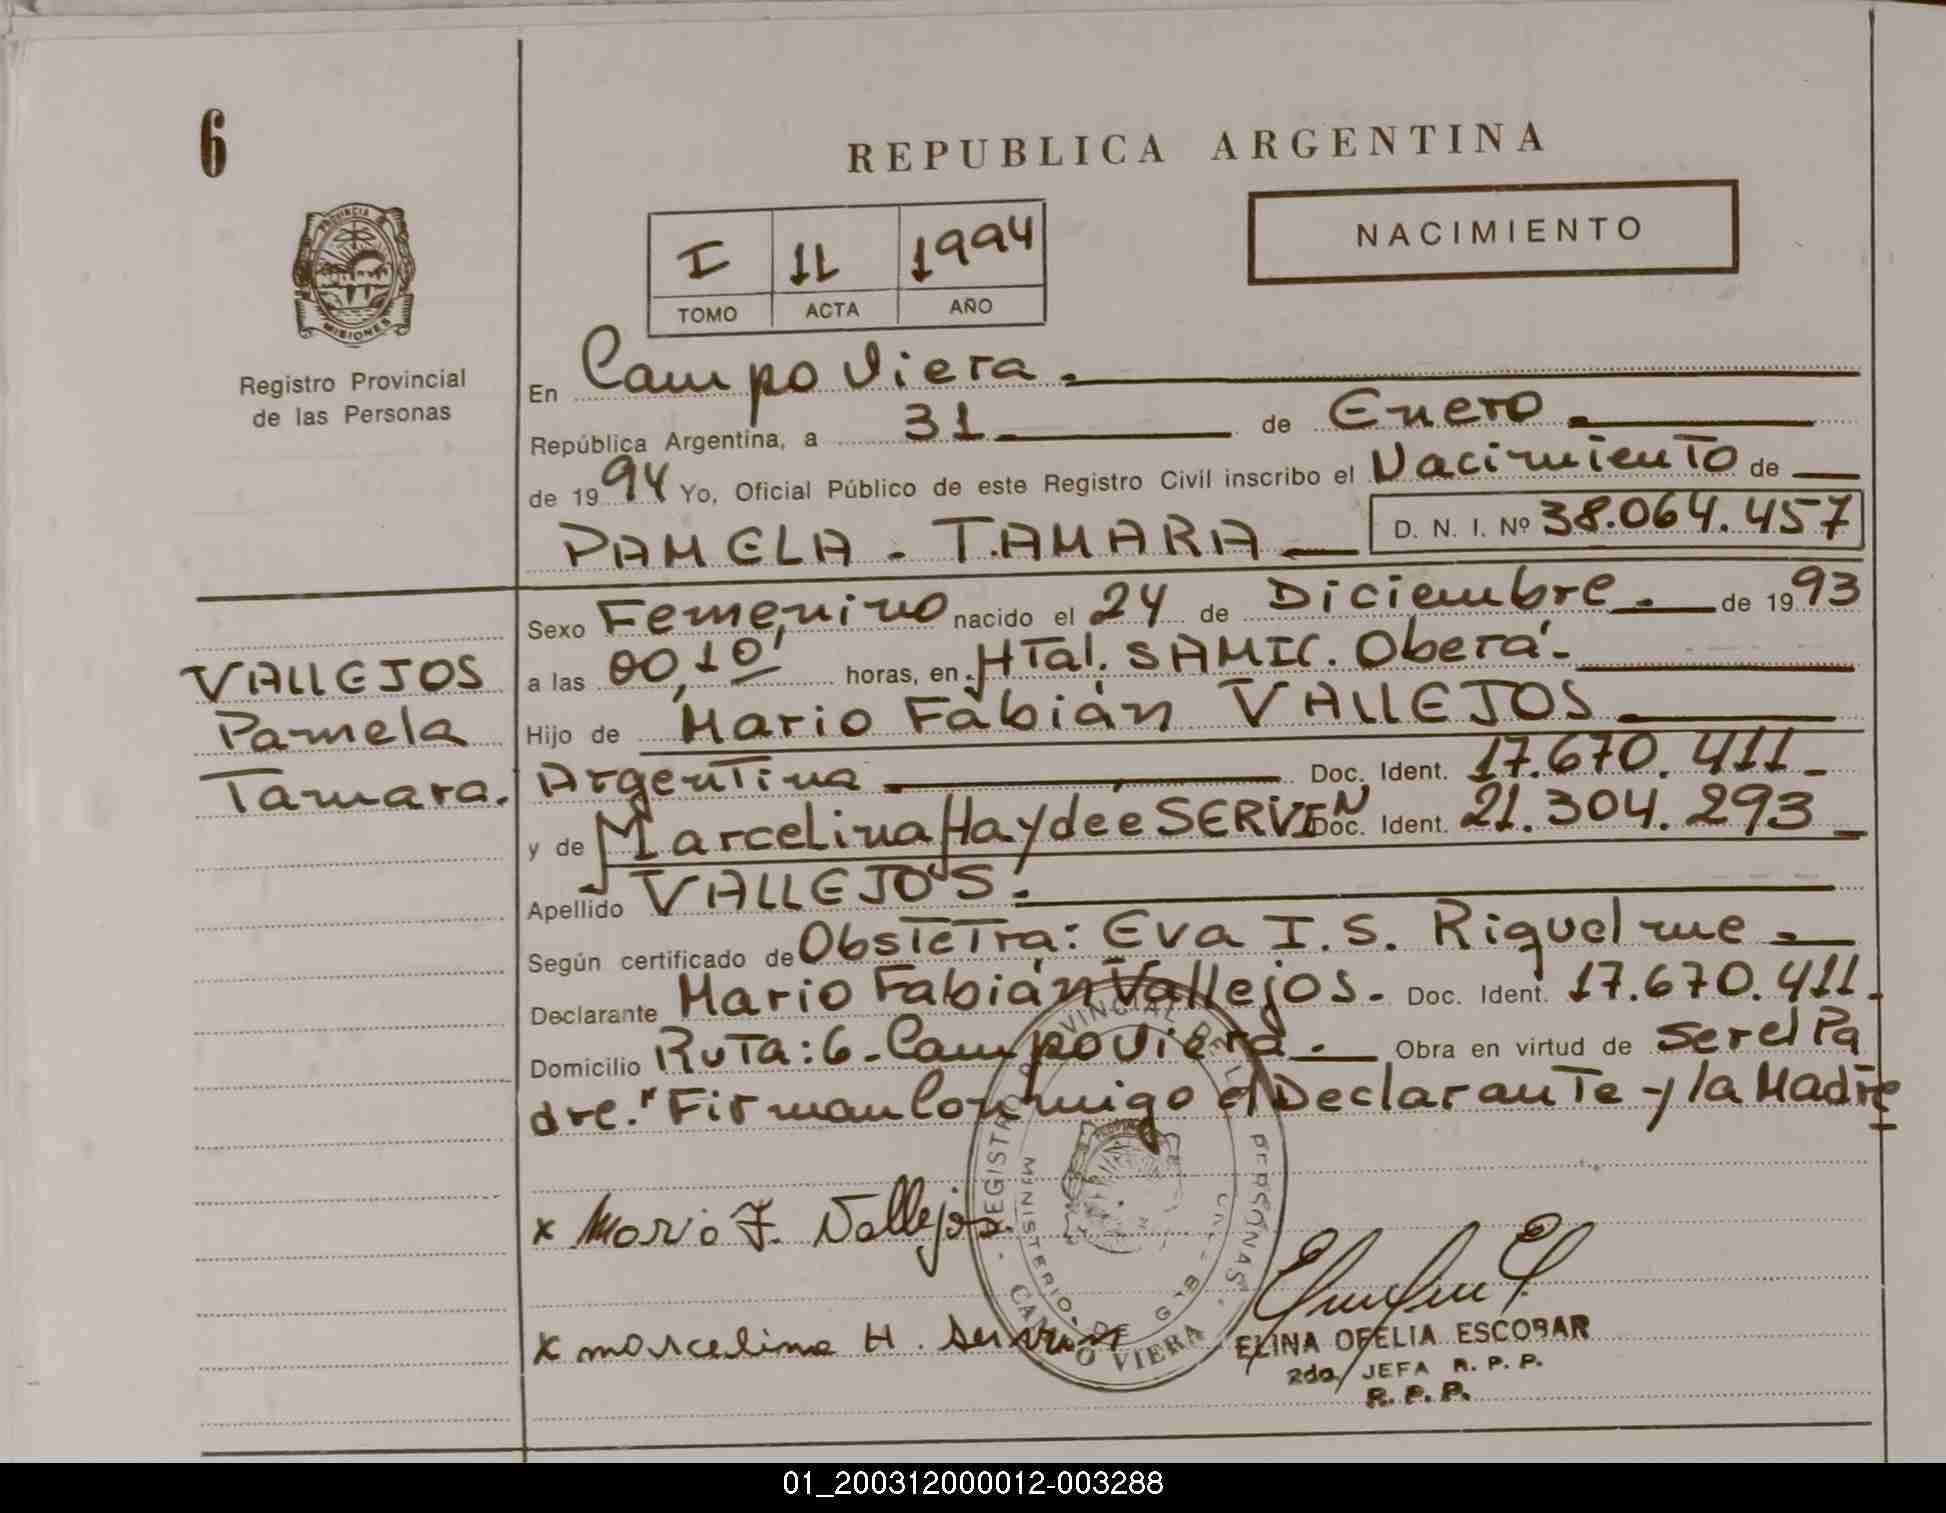 6
REPUBLICA ARGENTINA
NACIMIENTO
I 11 1994
TOMO ACTA AÑO
PROVINCIA DE
MISIONES
Registro Provincial
de las Personas
En Campo Viera.
República Argentina, a 31 de Enero
de 1994 Yo, Oficial Público de este Registro Civil inscribo el Nacimiento de
PAMELA - TAMARA D. N. I. Nº 38.064.457
Sexo Femenino nacido el 24 de Diciembre. de 1993
a las 00,10' horas, en Htal. SAMIC. Oberá.
Hijo de Mario Fabián VALLEJOS
Argentina Doc. Ident. 17.670.411
y de Marcelina Haydée SERVIN Doc. Ident. 21.304.293
Apellido VALLEJOS.
Según certificado de Obstetra: Eva I. S. Riquelme
Declarante Mario Fabián Vallejos. Doc. Ident. 17.670.411.
Domicilio Ruta: 6 - Campo Viera. Obra en virtud de Ser el Pa
dre." Firman Conmigo el Declarante y la Madre
VALLEJOS
Pamela
Tamara.
x Mario F. Vallejos
x marcelina H. Servin
REGISTRO PROVINCIAL DE LAS PERSONAS
MINISTERIO DE GOB
CAMPO VIERA
ELINA OFELIA ESCOBAR
2da JEFA R. P. P.
R. P. P.
01_200312000012-003288